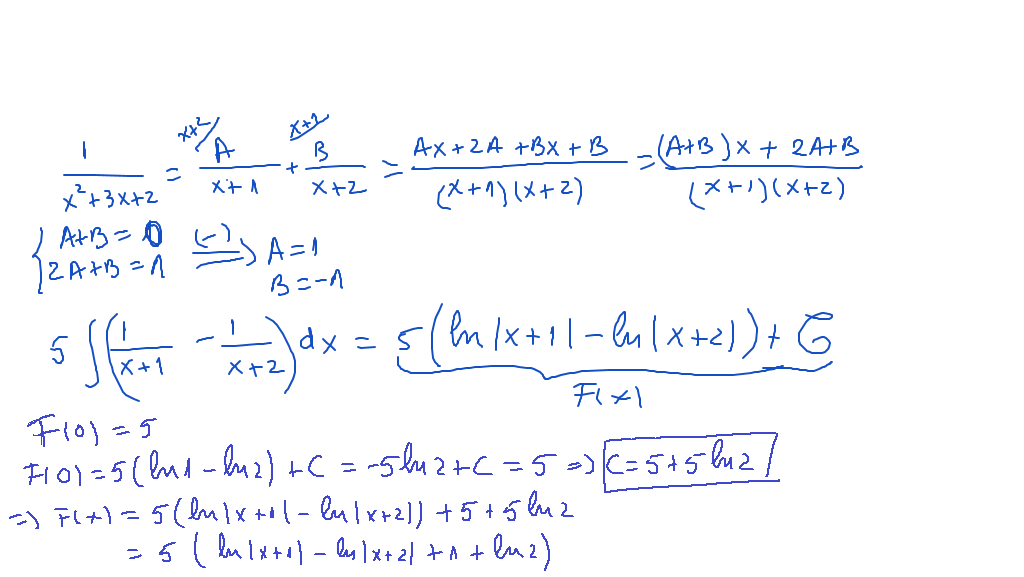 1/(x²+3x+2) = ˣ⁺²⁄ A/(x+1) + ˣ⁺¹⁄ B/(x+2) = (Ax+2A+Bx+B)/((x+1)(x+2)) = ((A+B)x+2A+B)/((x+1)(x+2))
{ A+B=0 (-) ⟹ A=1
2A+B=1 B=-1
5∫(1/(x+1) - 1/(x+2))dx = 5(ln|x+1|-ln|x+2|)+C
F(x)
F(0)=5
F(0)=5(ln1-ln2)+C=-5ln2+C=5 => C=5+5ln2
=> F(x)=5(ln|x+1|-ln|x+2|)+5+5ln2
=5(ln|x+1|-ln|x+2|+1+ln2)